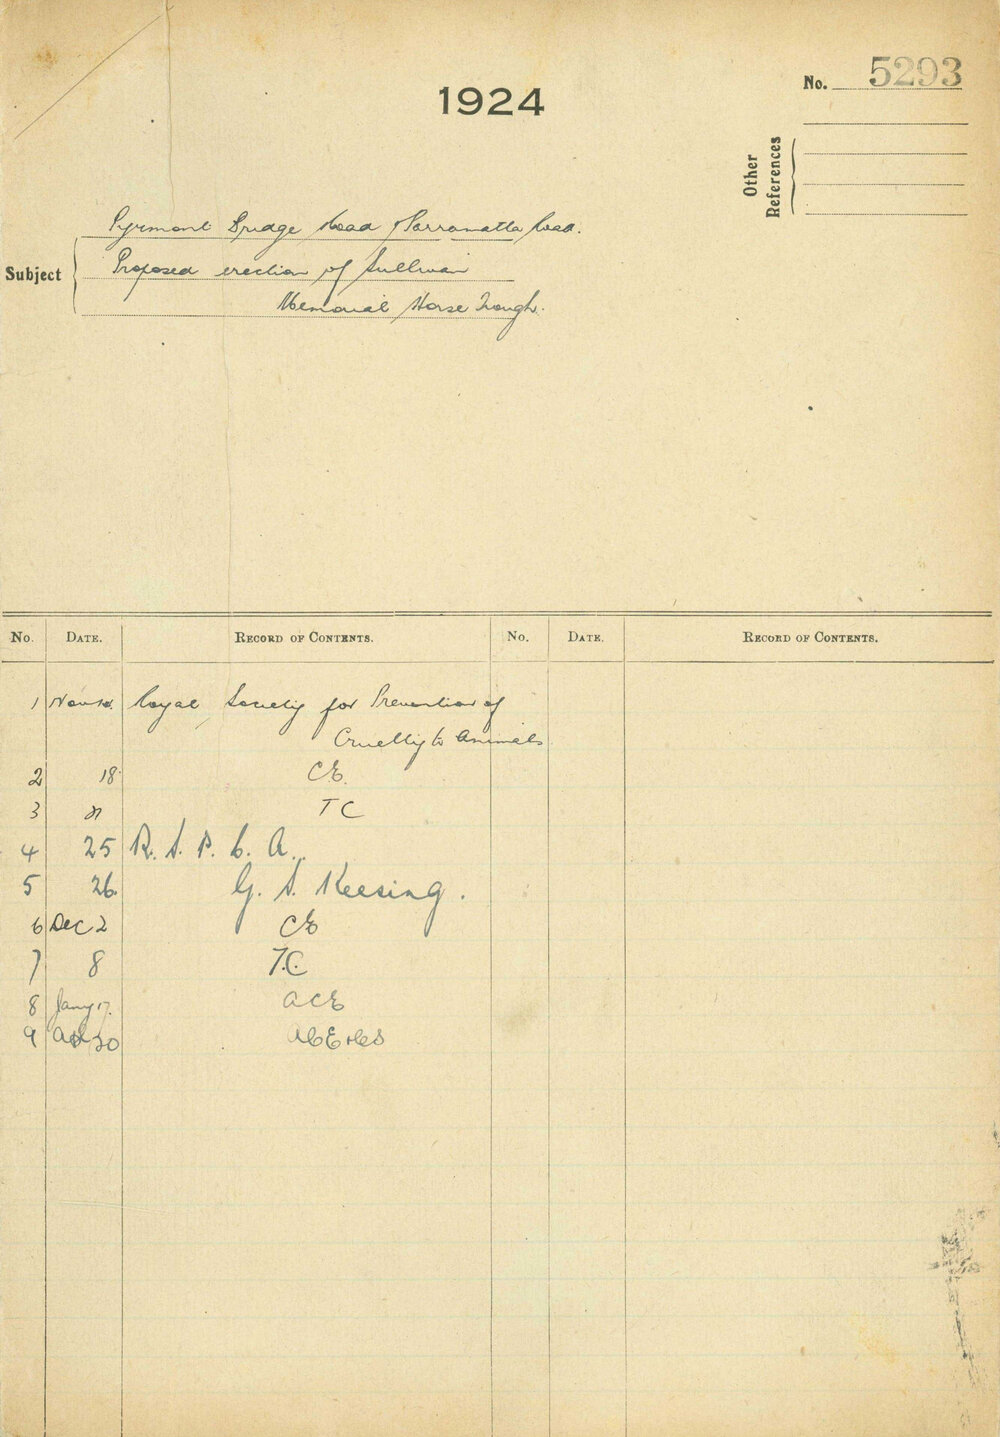 1924
No. 5293
Other References
Subject
Pyrmont Bridge Road & Parramatta Road.
Proposed erection of Sullivan
Memorial Horse Trough.
No. DATE. RECORD OF CONTENTS. No. DATE. RECORD OF CONTENTS.
1 Nov Royal Society for Prevention of
Cruelty to Animals
2 18 CE.
3 TC
4 25 R. S. P. C. A.
5 26. G. S. Keesing.
6 Dec 2 CE
7 8 T.C.
8 Jany 17. ACE
9 30